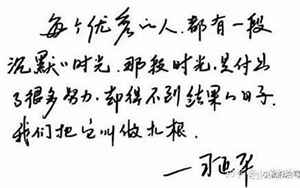 每个优秀的人.都有一段
沉默的时光.那段时光,是付出
了很多努力.却得不到结果的日子.
我们把它叫做扎根.
一习近平